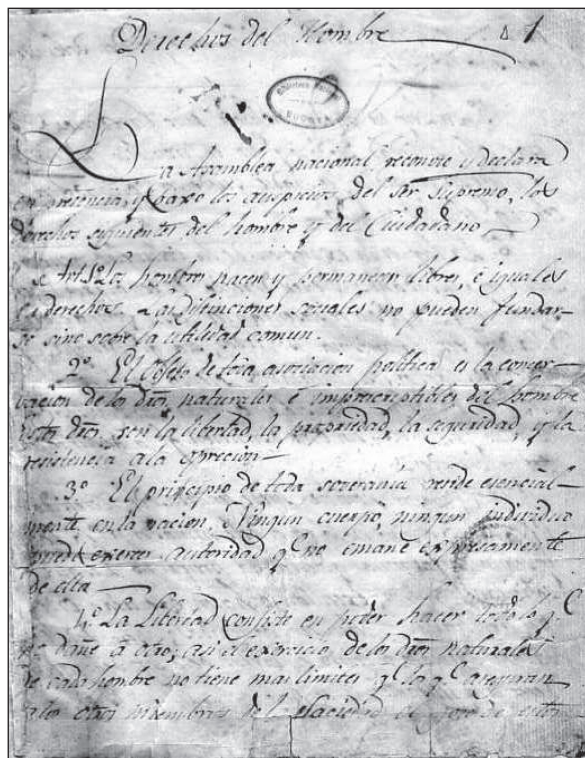 Derechos del Hombre 1
La Asamblea nacional reconoce y declara
en precencia, y baxo los auspicios del ser supremo, los
derechos siguientes del hombre y del Ciudadano
Art. 1º Los hombres nacen y permanecen libres, é iguales
en derechos. Las Distinciones sociales no pueden fundar-
se sino sobre la utilidad comun.
2º El objeto de toda asociacion politica es la conser-
vacion de los dros naturales é imprescriptibles del hombre
estos dros son la libertad, la propriedad, la seguridad, y la
resistencia a la opresion
3º El principio de toda soverania recide esencial-
mente en la nacion. Ningun cuerpo, ningun individuo
puede exercer autoridad q.e no emane expresamente
de ella
4º La Libertad consiste en poder hacer todo lo q.e
no dañe á otro; asi el exercicio de los dros naturales
de cada hombre no tiene mas limites q.e los q.e aseguran
a los otros miembros de la Sociedad el gose de estos